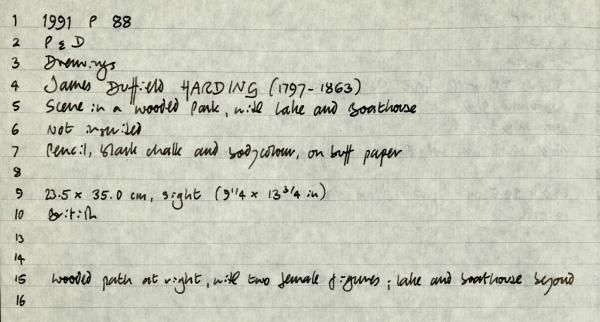 1 1991 P 88
2 P & D
3 Drawings
4 James Duffield HARDING (1797-1863)
5 Scene in a wooded Park, with lake and boathouse
6 Not inscribed
7 Pencil, black chalk and bodycolour, on buff paper
8
9 23.5 x 35.0 cm, sight (9 1/4 x 13 3/4 in)
10 British
13
14
15 Wooded path at right, with two female figures; lake and boathouse beyond
16